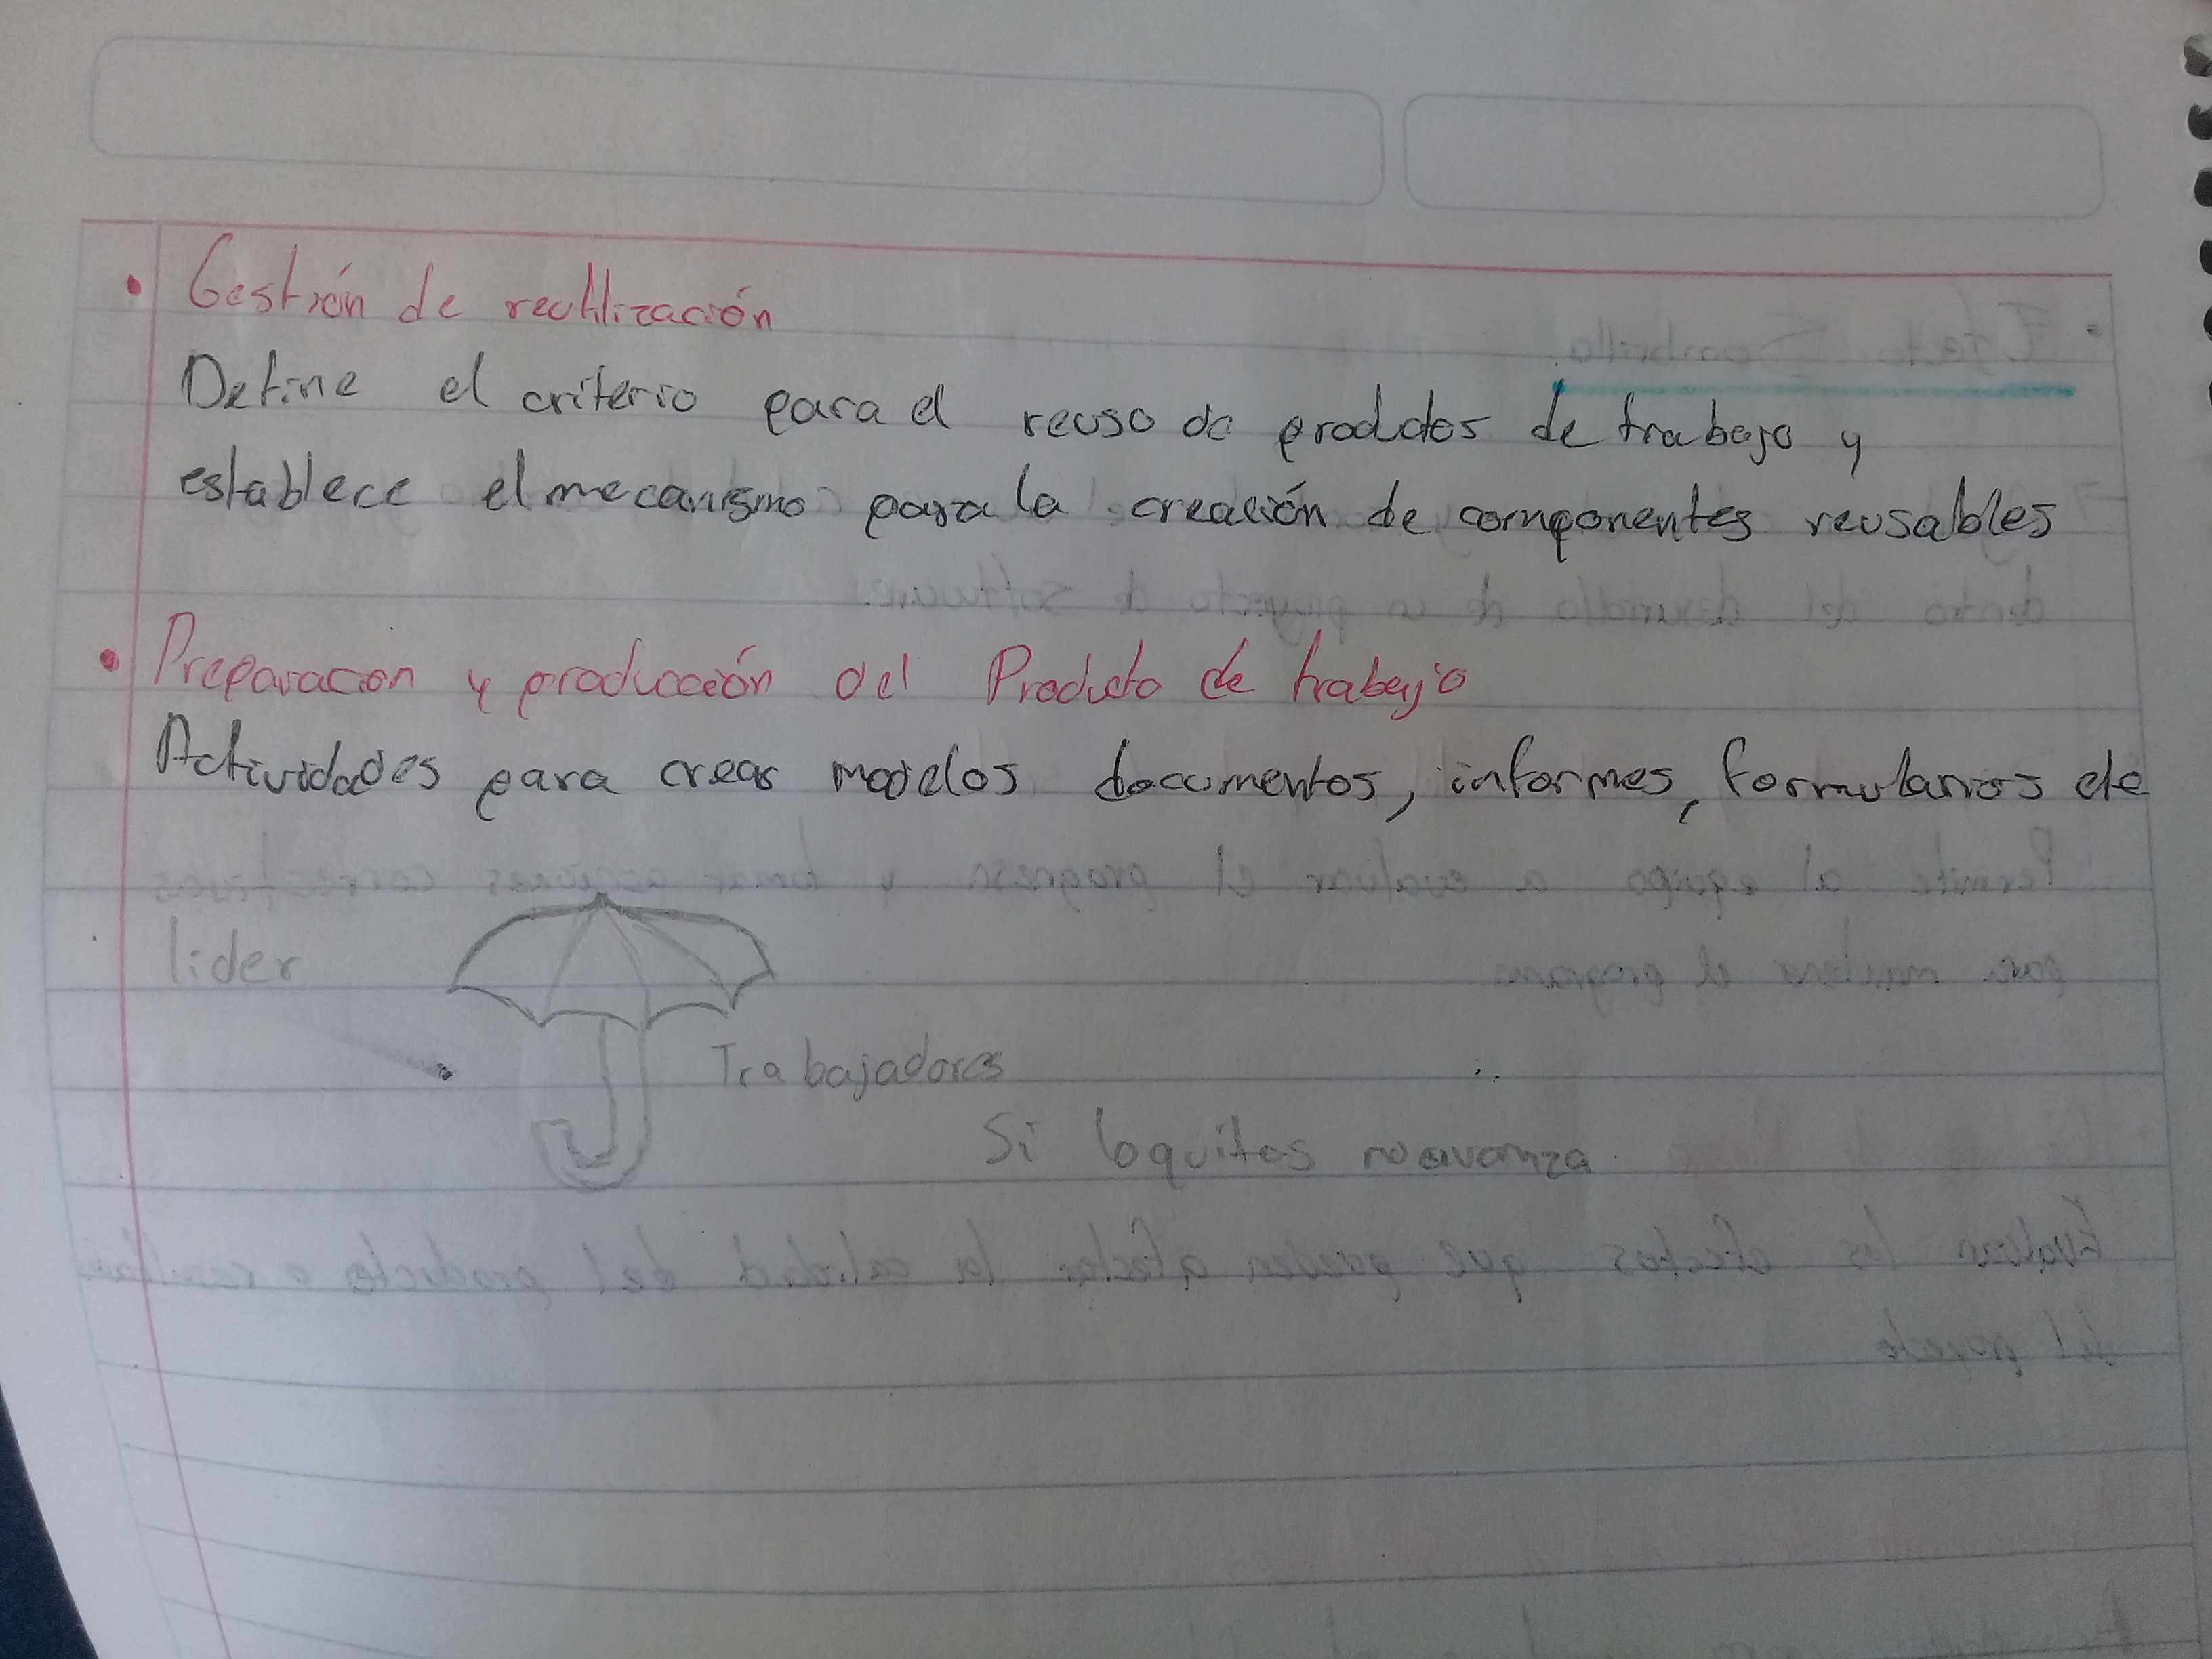 • Gestión de reutilización
Define el criterio para el reuso de productos de trabajo y
establece el mecanismo para la creación de componentes reusables
• Preparacion y producción del Producto de trabajo
Actividades para crear modelos documentos, informes, formularios de
lider
Trabajadores
Si loquitos no avanza